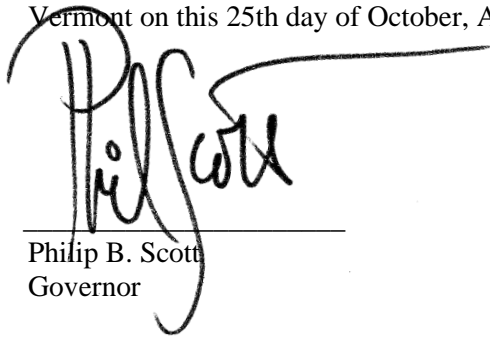 Vermont on this 25th day of October, A
Phil Scott
Philip B. Scott
Governor